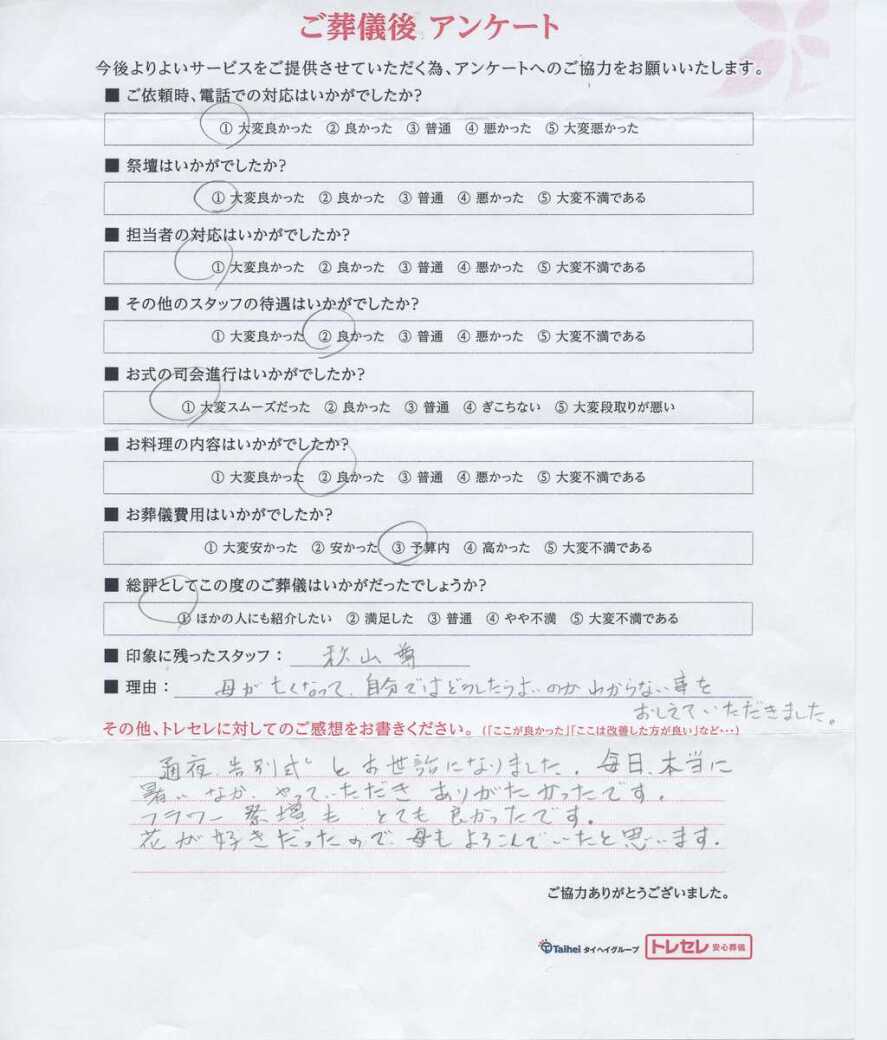 ご葬儀後 アンケート
今後よりよいサービスをご提供させていただく為、アンケートへのご協力をお願いいたします。
■ ご依頼時、電話での対応はいかがでしたか?
① 大変良かった ② 良かった ③ 普通 ④ 悪かった ⑤ 大変悪かった
■ 祭壇はいかがでしたか?
① 大変良かった ② 良かった ③ 普通 ④ 悪かった ⑤ 大変不満である
■ 担当者の対応はいかがでしたか?
① 大変良かった ② 良かった ③ 普通 ④ 悪かった ⑤ 大変不満である
■ その他のスタッフの待遇はいかがでしたか?
① 大変良かった ② 良かった ③ 普通 ④ 悪かった ⑤ 大変不満である
■ お式の司会進行はいかがでしたか?
① 大変スムーズだった ② 良かった ③ 普通 ④ ぎこちない ⑤ 大変段取りが悪い
■ お料理の内容はいかがでしたか?
① 大変良かった ② 良かった ③ 普通 ④ 悪かった ⑤ 大変不満である
■ お葬儀費用はいかがでしたか?
① 大変安かった ② 安かった ③ 予算内 ④ 高かった ⑤ 大変不満である
■ 総評としてこの度のご葬儀はいかがだったでしょうか?
① ほかの人にも紹介したい ② 満足した ③ 普通 ④ やや不満 ⑤ 大変不満である
■ 印象に残ったスタッフ: 秋山
■ 理由: 母が亡くなって、自分ではどうしたらよいのかわからない事を
おしえていただきました。
その他、トレセレに対してのご感想をお書きください。(「ここが良かった」「ここは改善した方が良い」など・・・)
通夜、告別式とお世話になりました。毎日、本当に
暑いなか、やっていただきありがたかったです。
フラワー祭壇も とても良かったです。
花が好きだったので、母もよろこんでいたと思います。
ご協力ありがとうございました。
Taihei タイヘイグループ トレセレ 安心葬儀